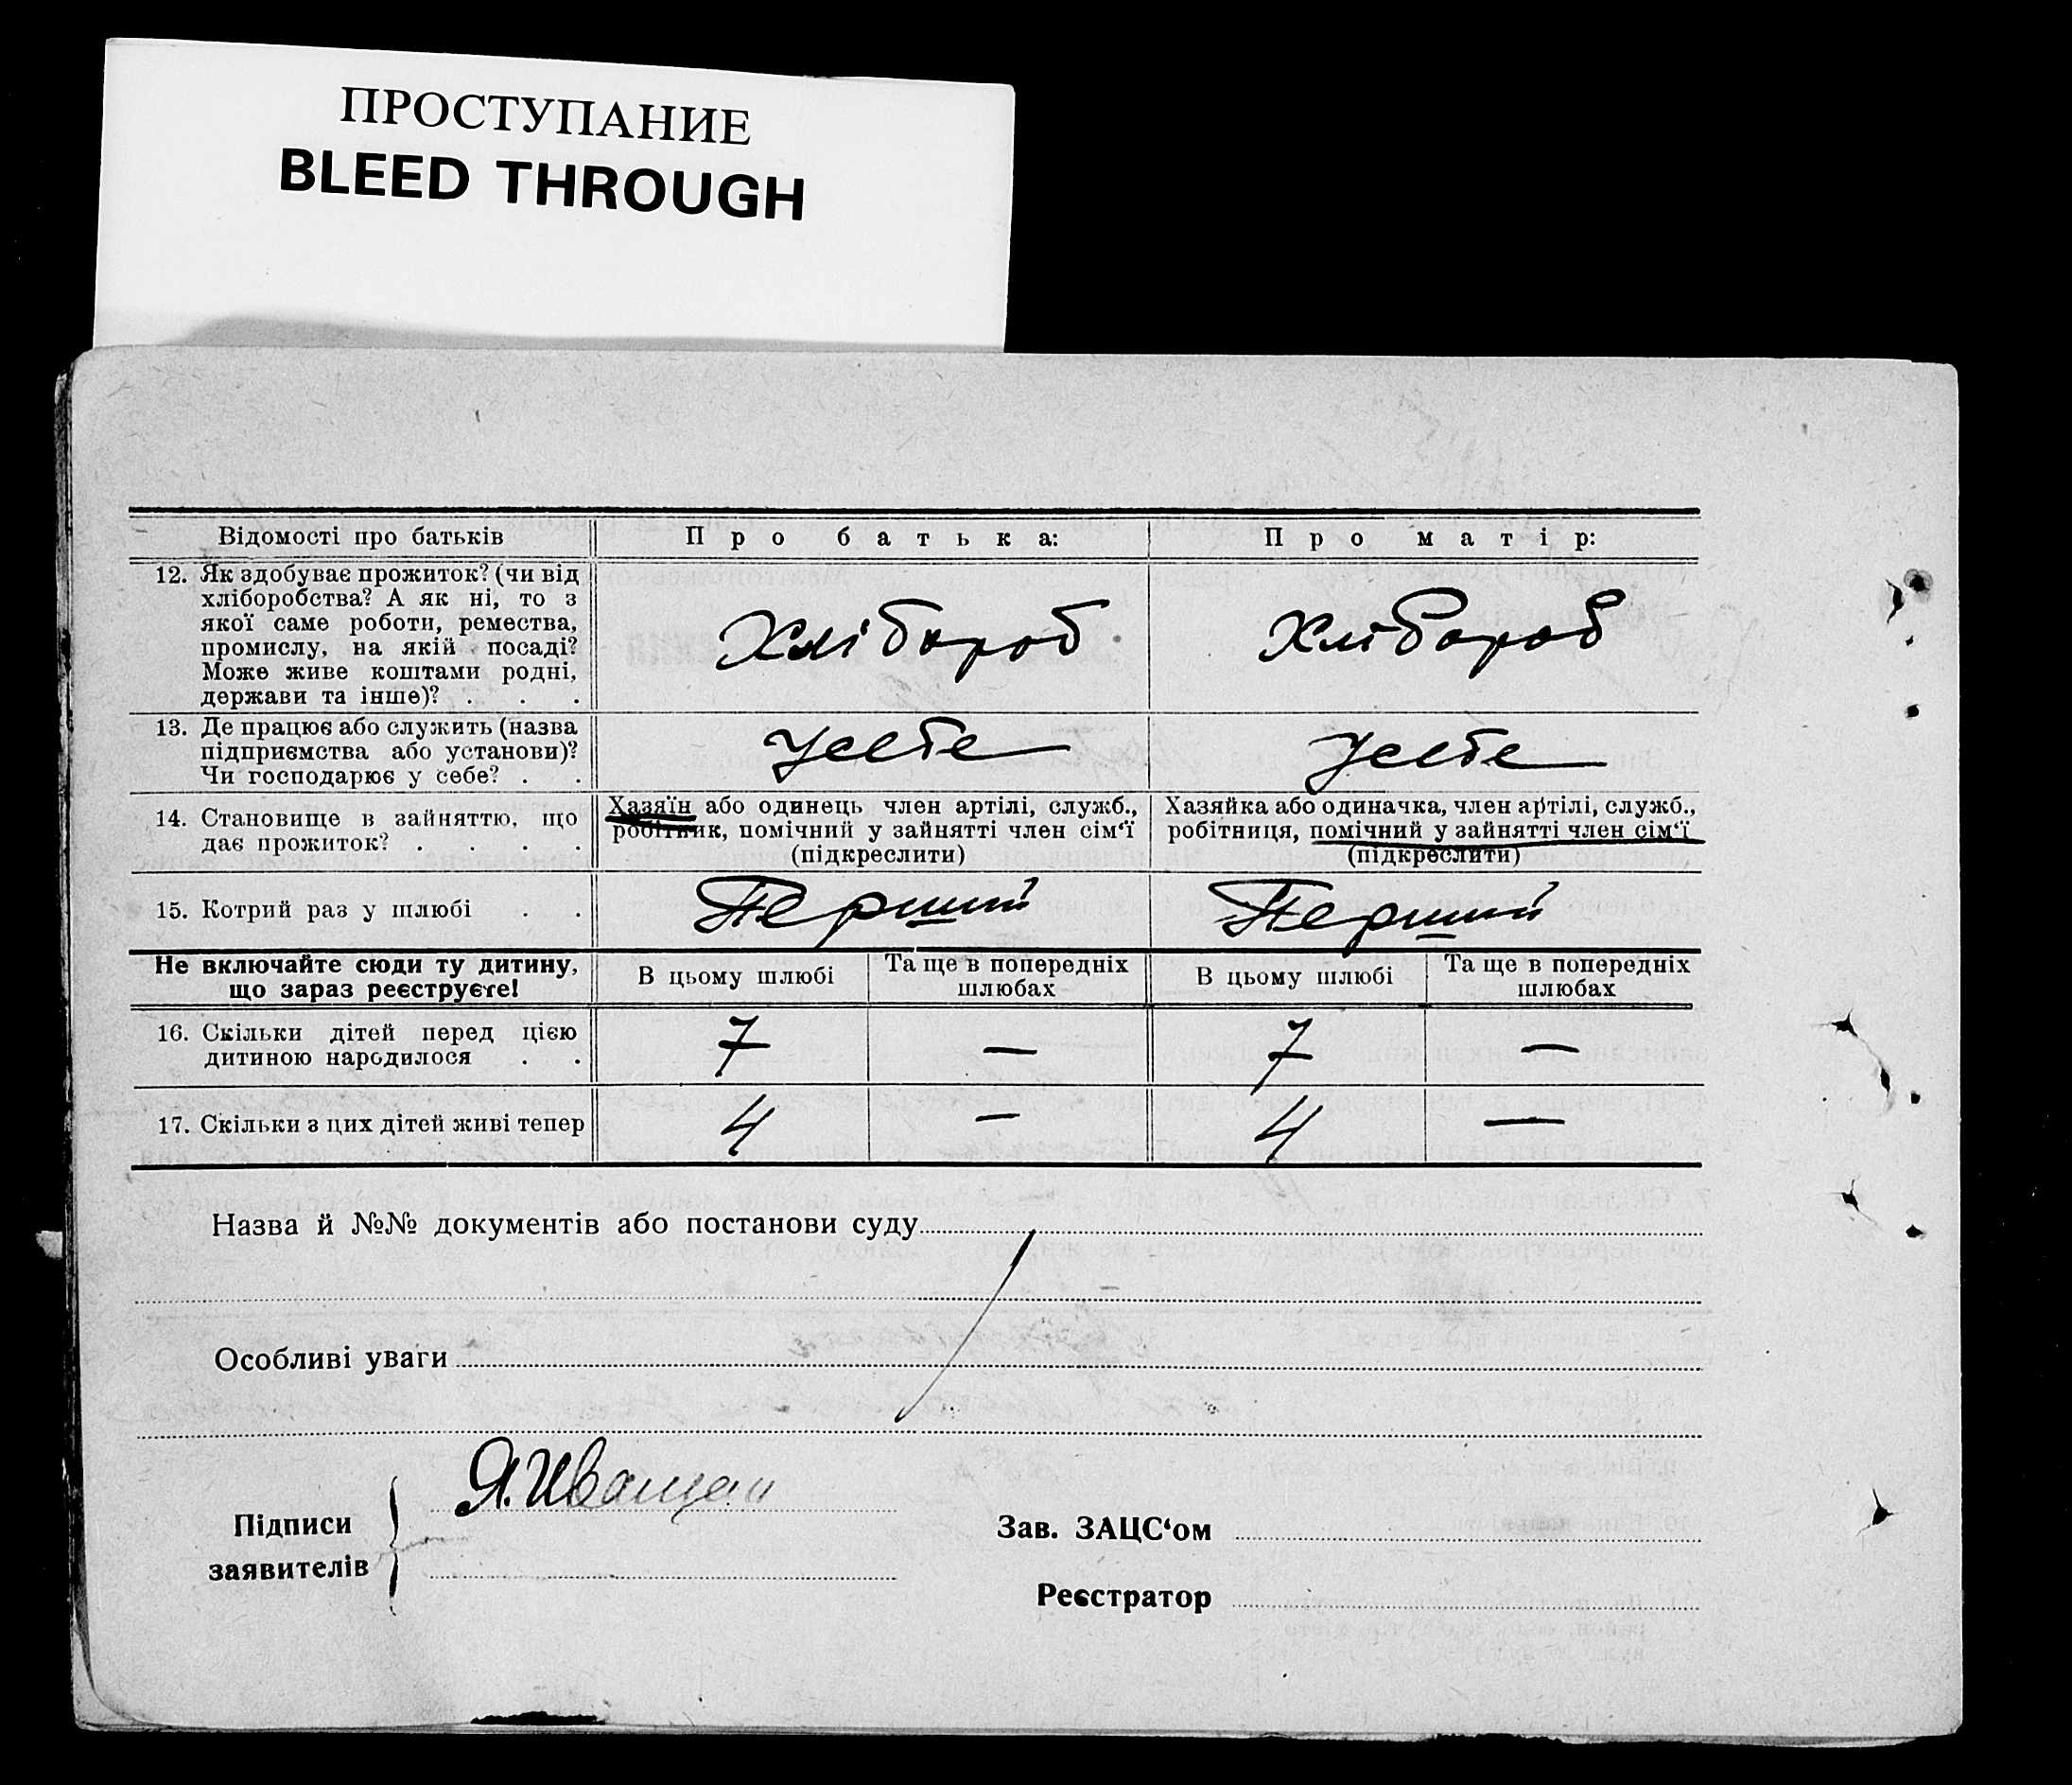 ПРОСТУПАНИЕ
BLEED THROUGH
Відомості про батьків
Про батька:
Про матір:
12. Як здобуває прожиток? (чи від
хліборобства? А як ні, то з
якої саме роботи, ремества,
промислу, на якій посаді?
Може живе коштами родні,
держави та інше)? . . .
Хлібороб
Хлібороб
13. Де працює або служить (назва
підприємства або установи)?
Чи господарює у себе? . .
Усебе
Усебе
14. Становище в зайняттю, що
дає прожиток? . . . .
Хазяїн або одинець член артілі, служб.,
робітник, помічний у зайнятті член сім‘ї
(підкреслити)
Хазяйка або одиначка, член артілі, служб.,
робітниця, помічний у зайнятті член сім‘ї
(підкреслити)
15. Котрий раз у шлюбі . .
Перший
Перший
Не включайте сюди ту дитину,
що зараз реєструєте!
В цьому шлюбі
Та ще в попередніх
шлюбах
В цьому шлюбі
Та ще в попередніх
шлюбах
16. Скільки дітей перед цією
дитиною народилося . .
7
—
7
—
17. Скільки з цих дітей живі тепер
4
—
4
—
Назва й №№ документів або постанови суду
Особливі уваги
Підписи
заявителів
Я.
Зав. ЗАЦС‘ом
Реєстратор